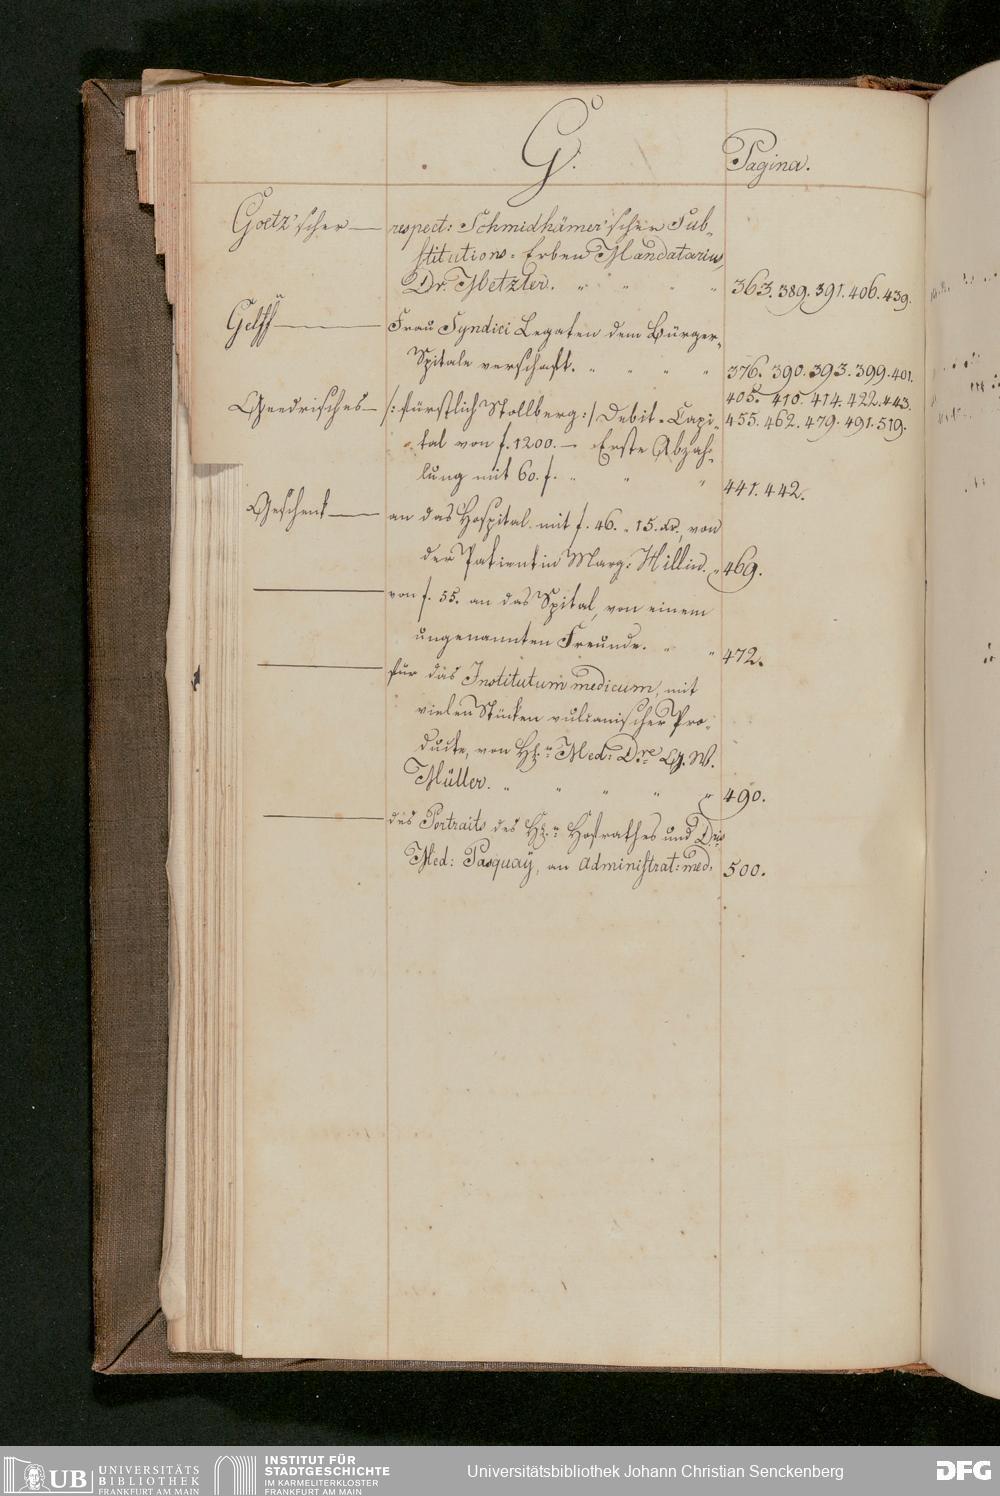 G.
Pagina.
Goetz'scher — respect: Schmidhämer'scher Sub-
stitutions-Erben Mandatarius
Dr. Metzler. " " " " 363. 389. 391. 406. 439.
Frau Syndici Legaten dem Bürger-
Spitale verschafft. " " " " 376. 390. 393. 399. 401.
405. 410. 414. 422. 443.
/: fürstlich Stollberg :/ Debit-Capi- 455. 462. 479. 491. 519.
tal von f. 1200. — Erste Abzah-
lung mit 60. f. " " " 441. 442.
Geschenk — an das Hospital mit f. 46. " 15. xr. von
der Patientin Marg: Hillin. " 469.
— von f. 55. an das Spital, von einem
ungenannten Freunde. " " 472.
— für das Institutum medicum, mit
vielen Stücken vulcanischer Pro-
ducte, von H. Med: Dre G. W.
Müller. " " " " " 490.
— des Portraits des H. Hofrathes und Dris
Med: Pasquaÿ, an Administrat: med. 500.
UB UNIVERSITÄTS
BIBLIOTHEK
FRANKFURT AM MAIN
INSTITUT FÜR
STADTGESCHICHTE
IM KARMELITERKLOSTER
FRANKFURT AM MAIN
Universitätsbibliothek Johann Christian Senckenberg
DFG